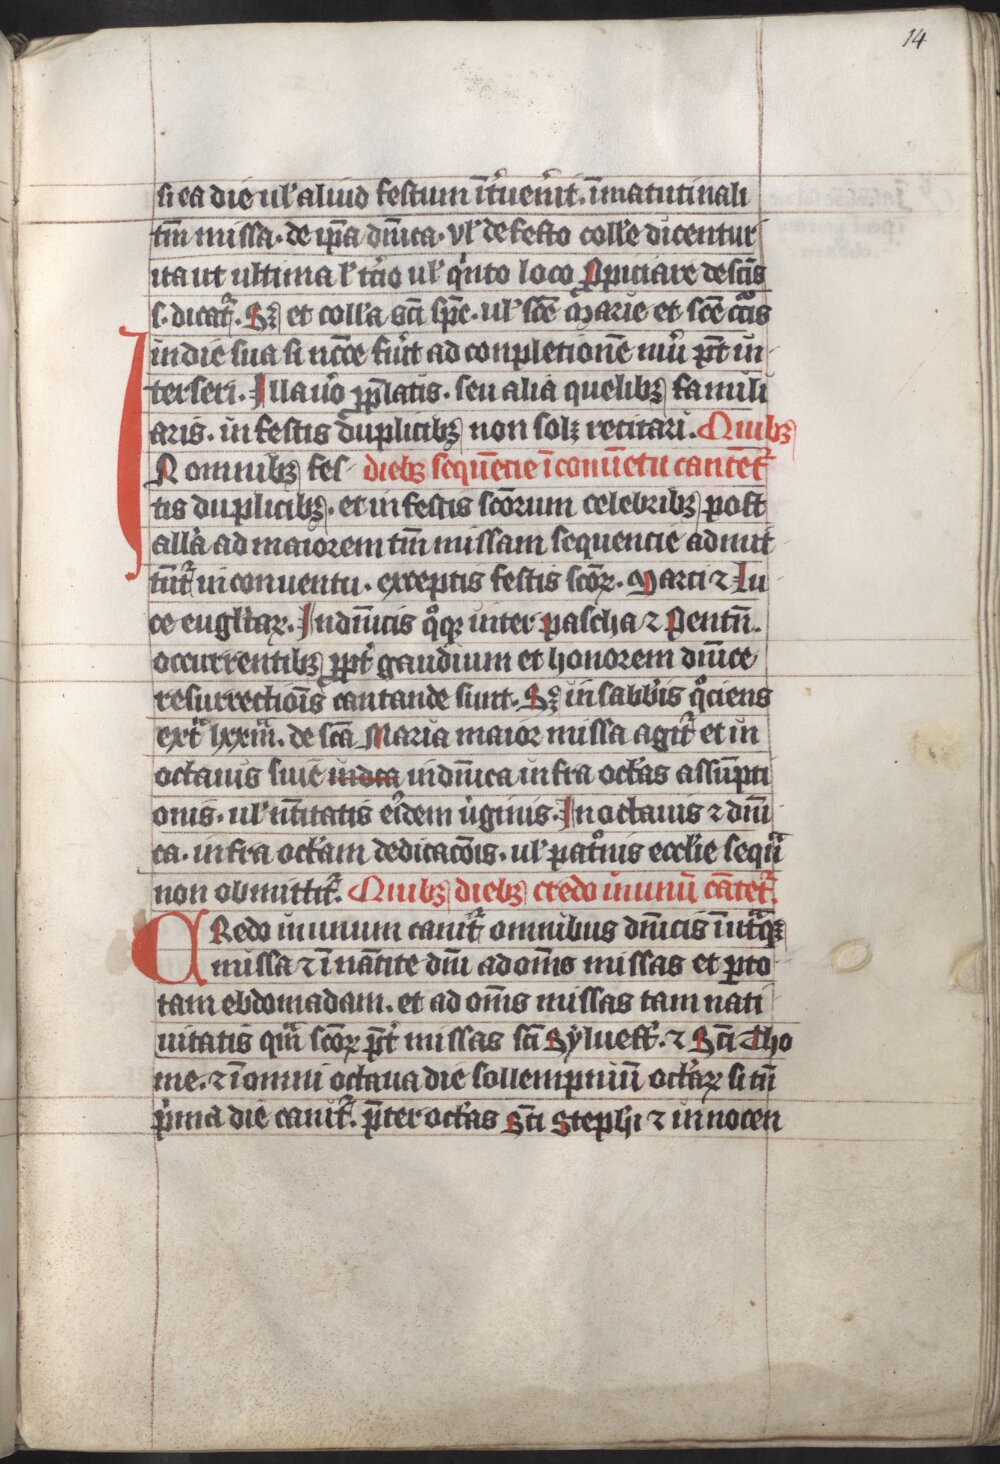 14
si ea die ul' aliud festum īt'uen'it. ī matutinali
tm̄ missa. de ip̄a dn̄ica. vl' de festo coll'e dicentur
ita ut ultima l' t'cio ul' q'nto loco Ppiciare de sc̄is
s. dicat'. Sꝫ et coll'a sc̄i sp̄c. ul' sc̄e Marie et sc̄e c'cis
in die sua si nēce fu'it ad conpletionē nūi p̄t in
terseri. Illa u'o p̄platis. seu alia quelibꝫ famili
aris. in festis duplicibꝫ non solꝫ recitari. Quibꝫ
IN omnibꝫ fes diebꝫ sequēcie ī conuētu cantēt'
tis duplicibꝫ. et in festis sc̄orum celebribꝫ post
all'a ad maiorem tm̄ missam sequencie admit
tūt' in conuentu. exceptis festis sc̄oꝝ. Marci ⁊ Lu
ce eugl'taꝝ. In dn̄icis q̊qꝫ inter pascha ⁊ Pentn̄.
occurrentibꝫ ꝓpt' gaudium et honorem dn̄ice
resurrectiōis cantande sunt. Sꝫ in sabb'is q̊ciens
ext' lxxm̄. de sc̄a Maria maior missa agit' et in
octauis siue in dn̄ica infra oct'as assūpti
onis. ul' n̄titatis ei'dem u'ginis. In octauis ⁊ dn̄i
ca. infra oct'am dedicac̄ois. ul' pat'nis eccl'ie seqūa
non obmittit'. Quibꝫ diebꝫ credo in unū cātet'.
CRedo in unum canit' omnibus dn̄icis ī ut'qꝫ
missa ⁊ ī natīte dn̄i ad om̄s missas et p to
tam ebdomadam. et ad om̄s missas tam nati
uitatis qm̄ sc̄oꝝ p̄t' missas sc̄i Syluest'. ⁊ Sc̄i Tho
me. ⁊ ī omni octaua die sollempniū oct'aꝝ si tn̄
p'ma die canit'. p̄ter oct'as Sc̄i Steph'i ⁊ innocen